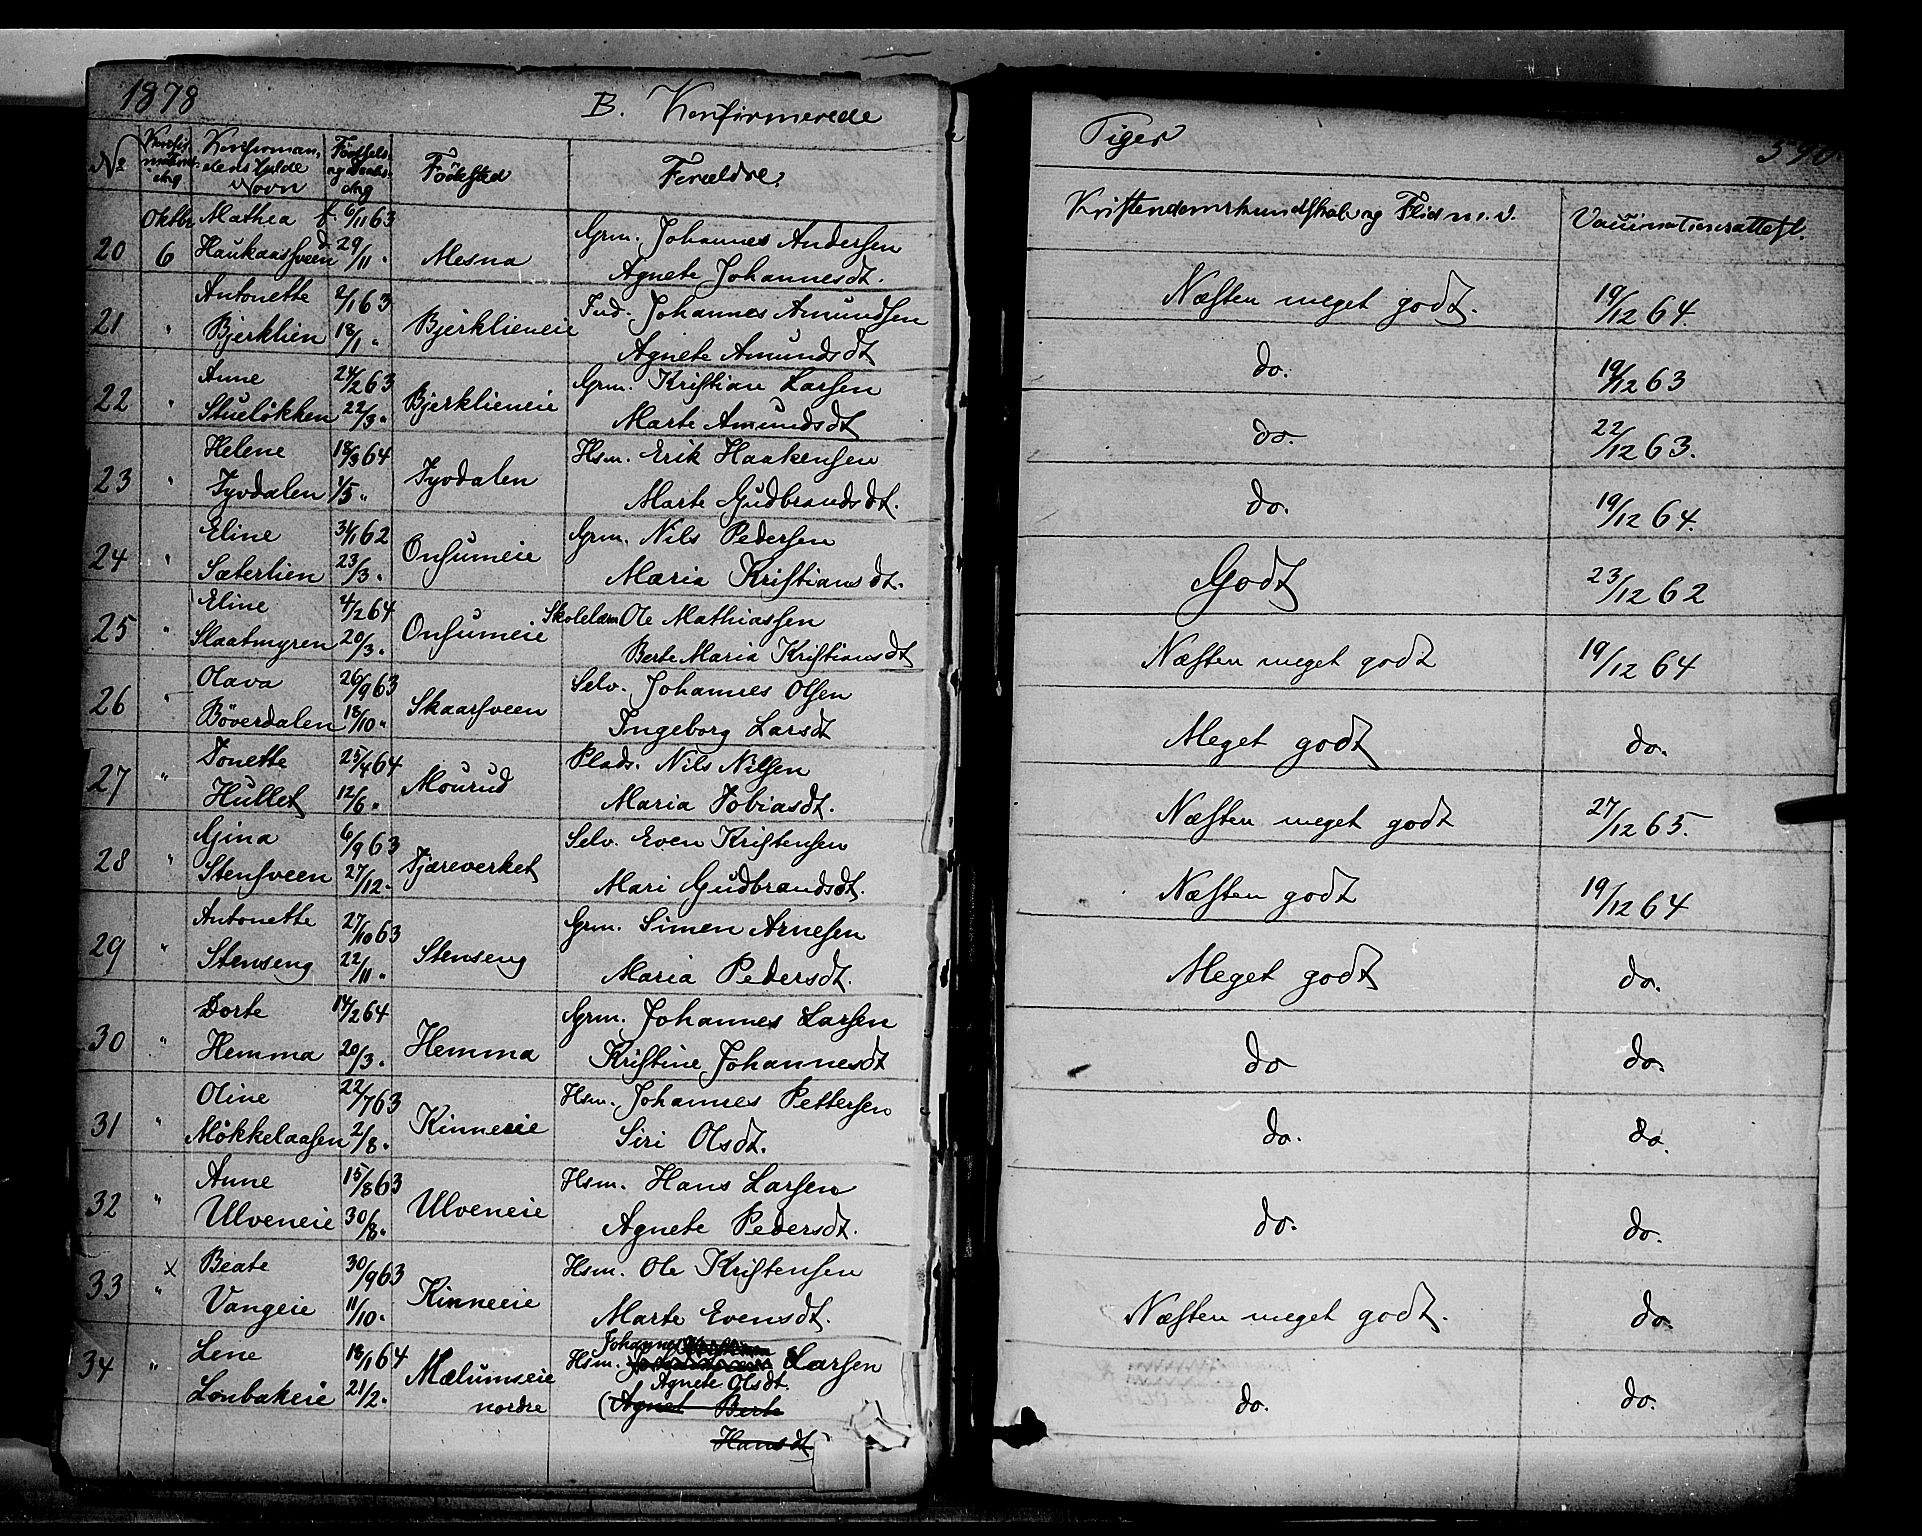 1878 B. Konfirmerede
Piger 390.
No Konfirmations-dag Konfirmandens fulde Navn Födsels og Daabsdag Födested Forældre.
Kristendomskundskab og Flid m. v. Vaccinationsattest.
Oktbr Mathea f. 6/11 63 Grm. Johannes Andersen
20 6 Haukaassveen d. 29/11 " Mesna Agnete Johannesdt. Næsten meget godt. 19/12 64.
Antonette 2/1 63 Ind. Johannes Amundsen
21 " Bjerklien 18/1 " Bjerklieneie Agnete Amundsdt do. 19/12 63
Anne 24/2 63 Grm. Kristian Larsen
22 " Stuelökken 22/3 " Bjerklieneie Marte Amundsdt do. 22/12 63.
Helene 18/3 64 Hsm. Erik Haakensen
23 " Tyvdalen 1/5 " Tyvdalen Marte Gudbrandsdt. do. 19/12 64.
Eline 31/1 62 Grm. Nils Pedersen
24 " Sæterlien 23/3 " Onsumeie Maria Kristiansdt. Godt 23/12 62
Eline 4/2 64 Skolelær. Ole Mathiassen
25 " Slaatmyren 20/3 " Onsumeie Berte Maria Kristiansdt Næsten meget godt 19/12 64
Olava 26/9 63 Selv. Johannes Olsen
26 " Böverdalen 18/10 " Skaarsveen Ingeborg Larsdt Meget godt do.
Tonette 25/4 64 Plads. Nils Nilsen
27 " Hullet 12/6 " Mourud Maria Tobiasdt. Næsten meget godt 27/12 65.
Gina 6/9 63 Selv. Even Kristensen
28 " Stensveen 27/12 " Tjæreverket Mari Gudbrandsdt. Næsten godt 19/12 64
Antonette 27/10 63 Grm. Simen Arnesen
29 " Stenseng 22/11 " Stenseng Maria Pedersdt. Meget godt do.
Dorte 14/2 64 Grm. Johannes Larsen
30 " Hemma 20/3 " Hemma Kristine Johannesdt do do.
Oline 22/7 63 Hsm. Johannes Pettersen
31 " Mökkelaasen 2/8 " Kinneeie Siri Olsdt. do. do.
Anne 15/8 63 Hsm. Hans Larsen
32 " Ulveneie 30/8 " Ulveneie Agnete Pedersdt. do. do.
x Beate 30/9 63 Hsm. Ole Kristensen
33 " Vangeie 11/10 " Kinneeie Marte Evensdt. Næsten meget godt. do.
Johannes
Lene 18/1 64 Hsm. Larsen
34 " Lonbakeie 21/2 " Mælumseie Agnete Olsdt. do. do.
nordre (Agnet Berte
Hansdt